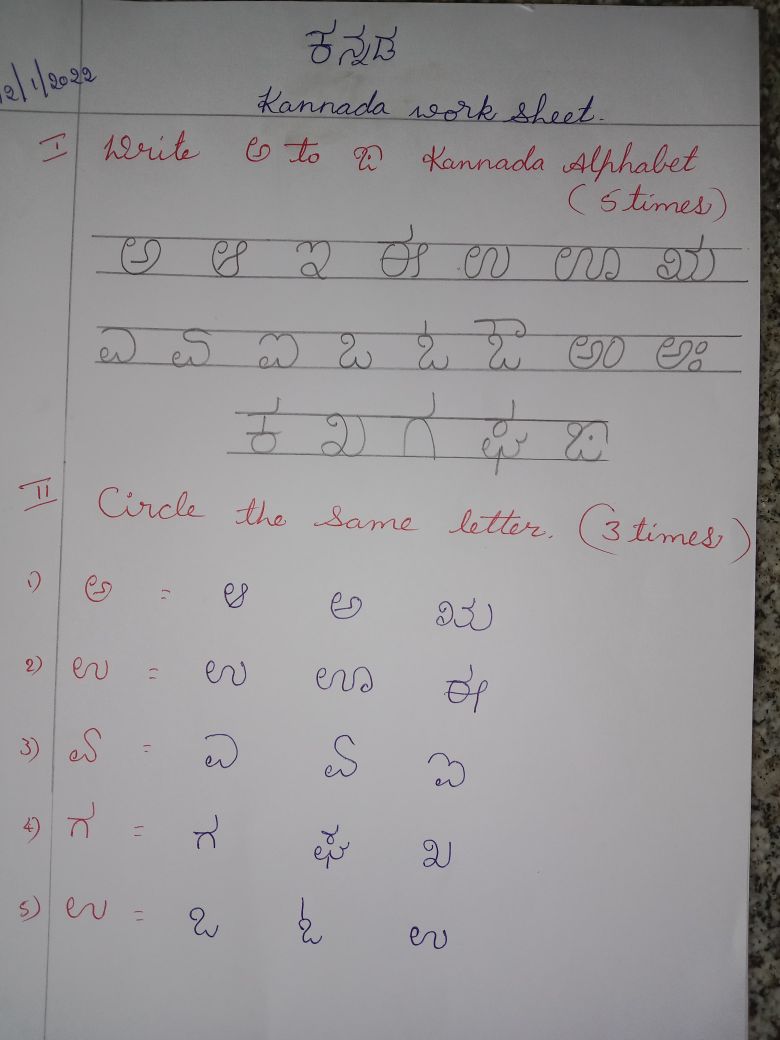 ಕನ್ನಡ
12/1/2022
Kannada work sheet.
I Write ಅ to ಙ Kannada Alphabet
(5 times)
ಅ ಆ ಇ ಈ ಉ ಊ ಋ
ಎ ಏ ಐ ಒ ಓ ಔ ಅಂ ಅಃ
ಕ ಖ ಗ ಘ ಙ
II Circle the same letter. (3 times)
1) ಅ = ಆ ಅ ಋ
2) ಉ = ಉ ಊ ಈ
3) ಏ = ಎ ಏ ಐ
4) ಗ = ಗ ಘ ಖ
5) ಉ = ಒ ಓ ಉ